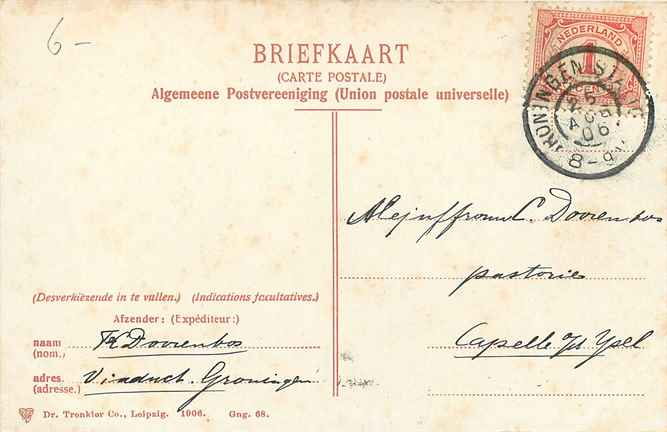 6-
BRIEFKAART
(CARTE POSTALE)
Algemeene Postvereeniging (Union postale universelle)
NEDERLAND
1
GRONINGEN STATION
AUG
06
8-9V
Mejuffrouw C. Doorenbos
pastorie
Capelle a/d Ysel
(Desverkiezende in te vullen.) (Indications facultatives.)
Afzender: (Expéditeur:)
naam
(nom.) K Doorenbos
adres.
(adresse.) Viaduct. Groningen
Dr. Trenkler Co., Leipzig. 1906. Gng. 68.